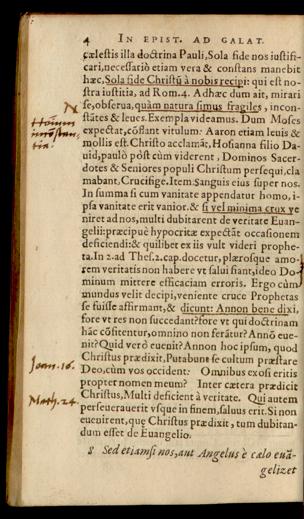 4 IN EPIST. AD GALAT.
cælestis illa doctrina Pauli, Sola fide nos iustifi-
cari, necessariò etiam vera & constans manebit
hæc, Sola fide Christũ à nobis recipi: qui est no-
stra iustitia, ad Rom. 4. Adhæc dum ait, mirari
se, obserua, quàm natura simus fragiles, incon-
stātes & leues. Exempla videamus. Dum Moses
expectat, cōstant vitulum: Aaron etiam leuis &
mollis est. Christo acclamāt, Hosianna filio Da-
uid, paulò pòst cùm viderent, Dominos Sacer-
dotes & Seniores populi Christum persequi, cla
mabant, Crucifige. Item: Sanguis eius super nos.
In summa si cum vanitate appendatur homo, i-
psa vanitate erit vanior. & si vel minima crux ve
niret ad nos, multi dubitarent de veritate Euan-
gelii: præcipuè hypocritæ expectāt occasionem
deficiendi: & quilibet ex iis vult videri prophe-
ta. In 2. ad Thes. 2. cap. docetur, plærosque amo-
rem veritatis non habere vt salui fiant, ideo Do-
minum mittere efficaciam erroris. Ergo cùm
mundus velit decipi, veniente cruce Prophetas
se fuisse affirmant, & dicunt: Annon bene dixi,
fore vt res non succedant? fore vt qui doctrinam
hāc cōfitentur, omnino non ferātur? Annō eue-
nit? Quid verò euenit? Annon hoc ipsum, quod
Christus prædixit, Putabunt se cultum præstare
Deo, cùm vos occident: Omnibus exosi eritis
propter nomen meum? Inter cætera prædicit
Christus, Multi deficient à veritate. Qui autem
perseuerauerit vsque in finem, saluus erit. Si non
euenirent, que Christus prædixit, tum dubitan-
dum esset de Euangelio.
8 Sed etiamsi nos, aut Angelus è cælo euā-
gelizet
Hominū
inconstan-
tia.
Joan. 16.
Math. 24.